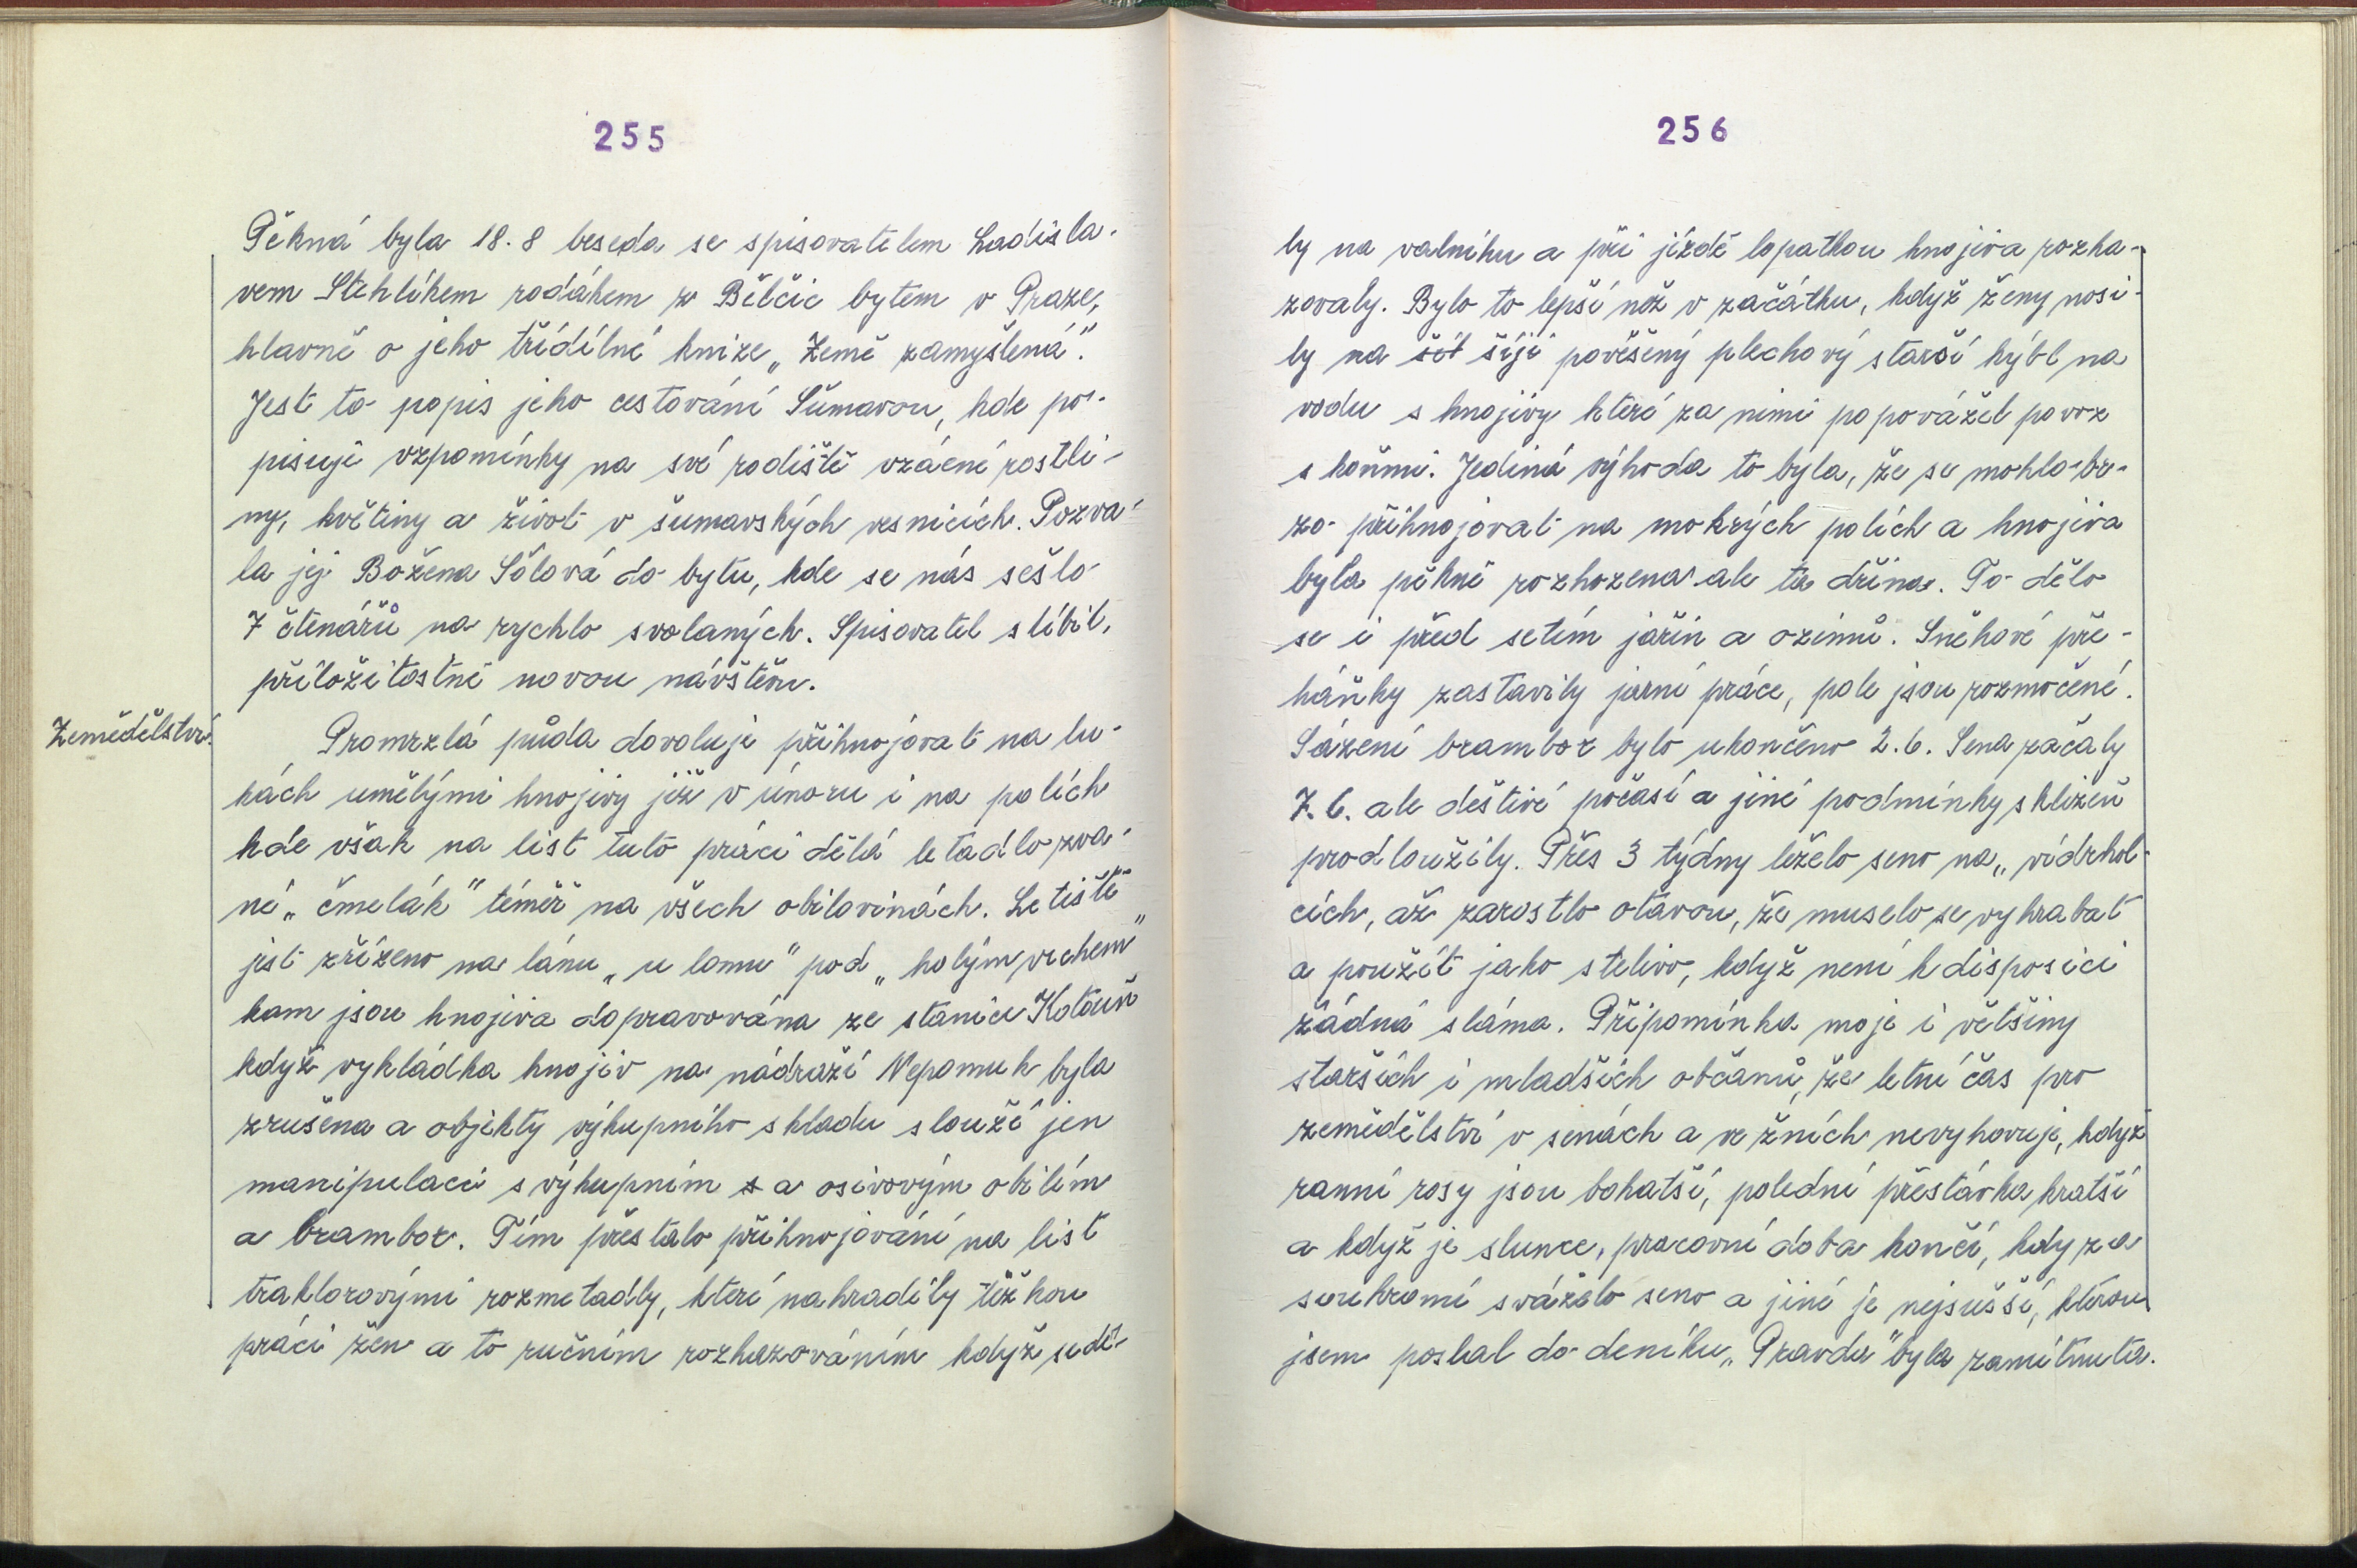 255
Pěkná byla 18.8 beseda se spisovatelem Ladisla-
vem Stehlíkem rodákem z Bělčic bytem v Praze,
hlavně o jeho třídílné knize „Země zamyšlená".
Jest to popis jeho cestování Šumavou, kde po-
pisuje vzpomínky na své rodiště vzácné rostli-
ny, květiny a život v šumavských vesnicích. Pozva-
la jej Božena Šólová do bytu, kde se nás sešlo
7 čtenářů na rychlo svolaných. Spisovatel slíbil,
příložitostně novou návštěvu.
Zemědělství.
Promrzlá půda dovoluje přihnojóvat na lu-
kách umělými hnojivy již v únoru i na polích
kde však na list tuto práci dělá letadlo zva-
né „čmelák" téměř na všech obilovinách. Letiště
jest zřízeno na lánu „u lomu" pod „holým vrchem"
kam jsou hnojiva dopravována ze stanice Kotouň
když vykládka hnojiv na nádraží Nepomuk byla
zrušena a objekty výkupního skladu slouží jen
manipulaci s výkupním s a osivovým obilím
a brambor. Tím přestalo přihnojóvání na list
traktorovými rozmetadly, které nahradily těžkou
práci žen a to ručním rozhazováním když sedě-
256
ly na valníku a při jízdě lopatkou hnojiva rozha-
zovaly. Bylo to lepší než v začátku, když ženy nosi-
ly na šét šíji pověšený plechový starší kýbl na
vodu s hnojivy které za nimi popovážel povoz
s koňmi. Jediná výhoda to byla, že se mohlo br-
zo přihnojóvat na mokrých polích a hnojiva
byla pěkně rozhozena ale ta dřina. To dělo
se i před setím jařin a ozimů. Sněhové pře-
háňky zastavily jarní práce, pole jsou rozmočené.
Sázení brambor bylo ukončeno 2.6. Sena začaly
7.6. ale deštivé počasí a jiné podmínky sklizeň
prodloužily. Přes 3 týdny leželo seno na „vidrhol-
cích, až zarostlo otavou, že muselo se vyhrabat
a použít jako stelivo, když není k disposici
žádná sláma. Připomínka moje i většiny
starších i mladších občanů, že letní čas pro
zemědělství v senách a ve žních nevyhovuje, když
ranní rosy jsou bohatší, polední přestávka kratší
a když je slunce, pracovní doba končí, kdy za
soukromí sváželo seno a jiné je nejsušší, kterou
jsem poslal do deníku „Pravda" byla zamítnuta.